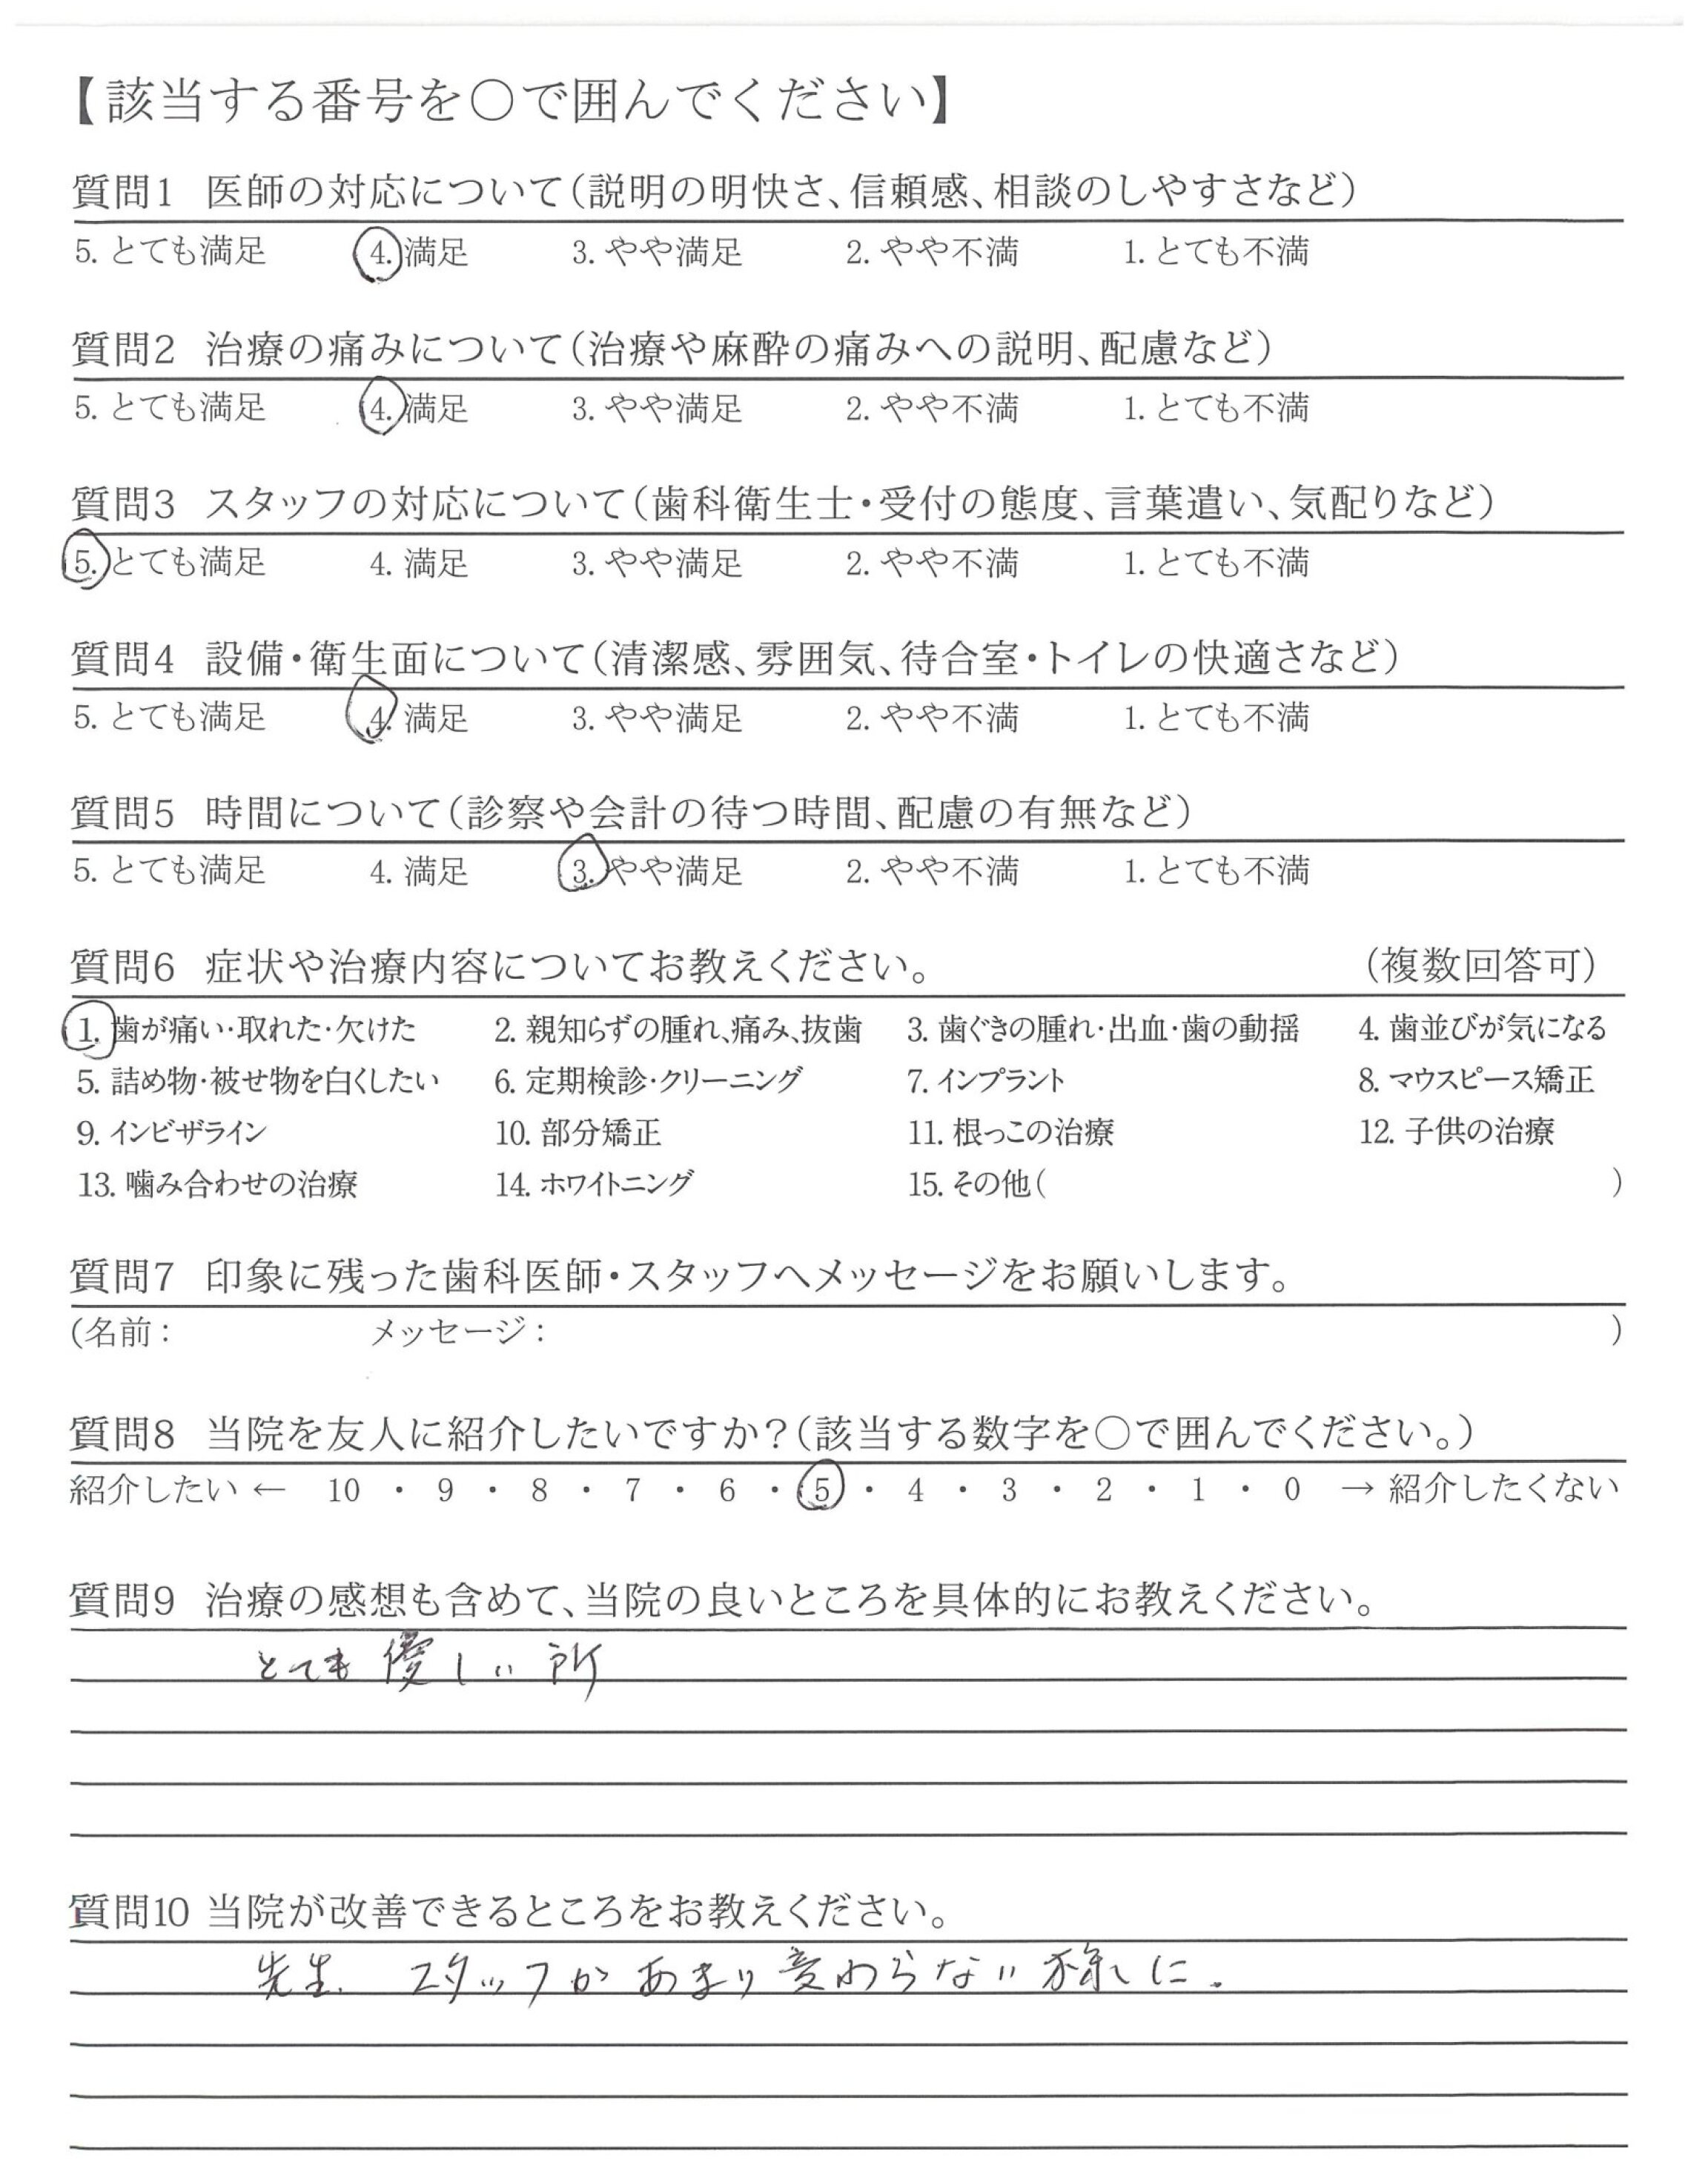 【該当する番号を○で囲んでください】
質問1 医師の対応について(説明の明快さ、信頼感、相談のしやすさなど)
5. とても満足 4. 満足 3. やや満足 2. やや不満 1. とても不満
質問2 治療の痛みについて(治療や麻酔の痛みへの説明、配慮など)
5. とても満足 4. 満足 3. やや満足 2. やや不満 1. とても不満
質問3 スタッフの対応について(歯科衛生士・受付の態度、言葉遣い、気配りなど)
5. とても満足 4. 満足 3. やや満足 2. やや不満 1. とても不満
質問4 設備・衛生面について(清潔感、雰囲気、待合室・トイレの快適さなど)
5. とても満足 4. 満足 3. やや満足 2. やや不満 1. とても不満
質問5 時間について(診察や会計の待つ時間、配慮の有無など)
5. とても満足 4. 満足 3. やや満足 2. やや不満 1. とても不満
質問6 症状や治療内容についてお教えください。 (複数回答可)
1. 歯が痛い・取れた・欠けた 2. 親知らずの腫れ、痛み、抜歯 3. 歯ぐきの腫れ・出血・歯の動揺 4. 歯並びが気になる
5. 詰め物・被せ物を白くしたい 6. 定期検診・クリーニング 7. インプラント 8. マウスピース矯正
9. インビザライン 10. 部分矯正 11. 根っこの治療 12. 子供の治療
13. 噛み合わせの治療 14. ホワイトニング 15. その他( )
質問7 印象に残った歯科医師・スタッフへメッセージをお願いします。
(名前: メッセージ: )
質問8 当院を友人に紹介したいですか?(該当する数字を○で囲んでください。)
紹介したい ← 10 ・ 9 ・ 8 ・ 7 ・ 6 ・ 5 ・ 4 ・ 3 ・ 2 ・ 1 ・ 0 → 紹介したくない
質問9 治療の感想も含めて、当院の良いところを具体的にお教えください。
とても優しい所
質問10 当院が改善できるところをお教えください。
先生、スタッフがあまり変わらない様に.